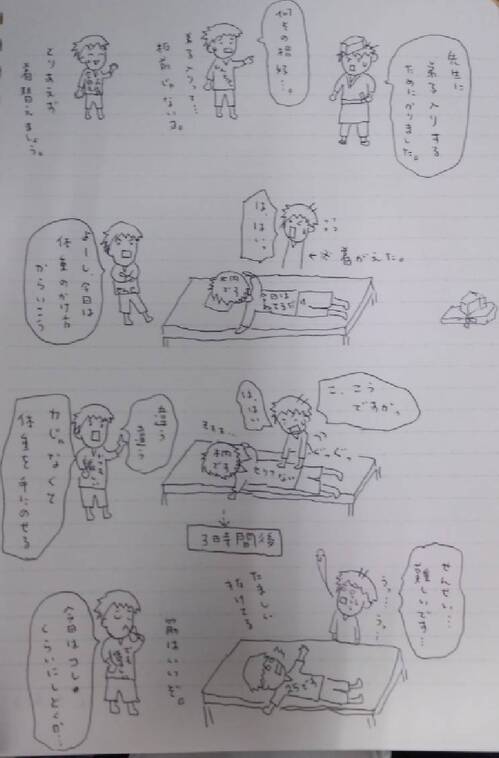 先生に
弟子入りする
ためにやりました。
何その格好…。
弟子入りって…
相撲じゃないよ。
とりあえず
着替えましょう。
は、はいっ。
←※着がえた。
よーし、今日は
体重のかけ方
からいこう
こ、こう
ですかっ
ぐっぐっ
は、はい
力じゃなくて
体重を手にのせる
↓
3時間後
せんせい…
難しいです…
うっ…う…
たましい
抜けてる
筋はいいぞ。
今日はコレ
くらいにしとくか…